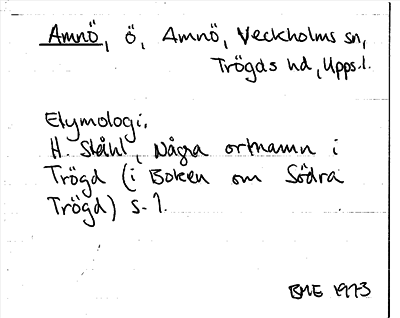 Amnö, ö, Amnö, Veckholms sn,
Trögds hd, Upps.l.
Etymologi.
H. Ståhl, Några ortnamn i
Trögd (i Boken om Södra
Trögd) s. 1.
BME 1973